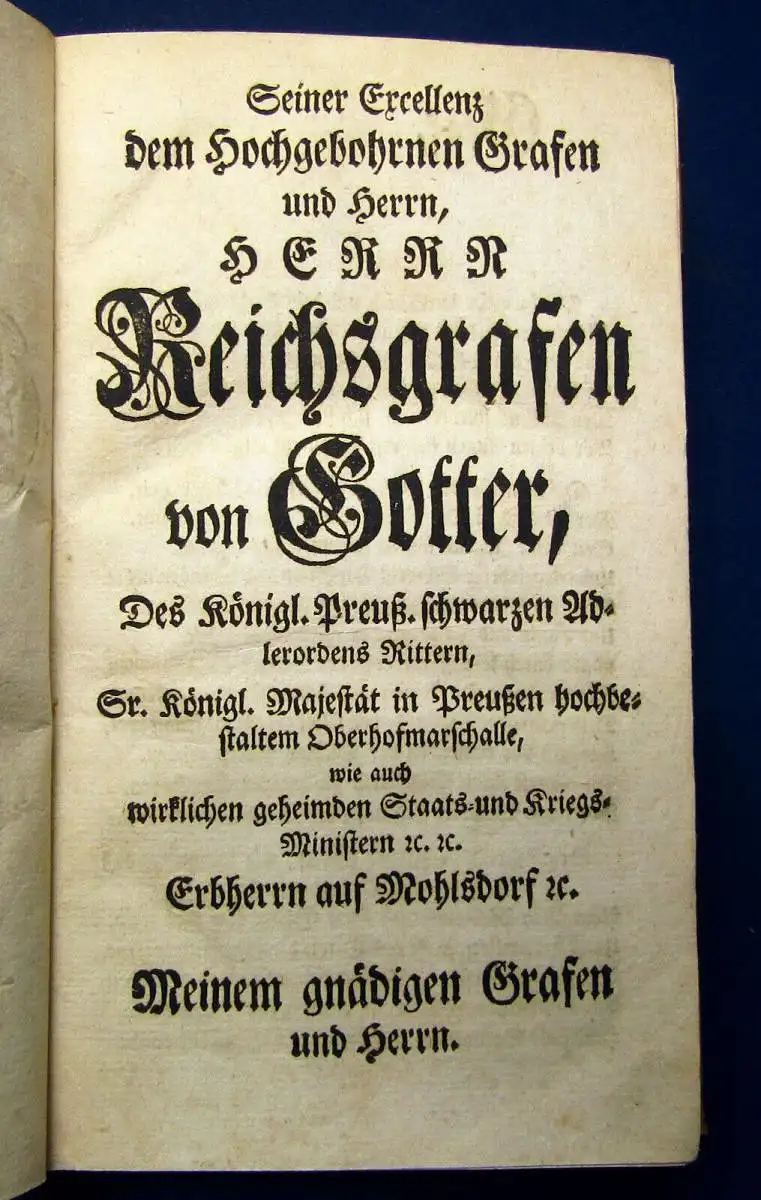 Seiner Excellenz
dem Hochgebohrnen Grafen
und Herrn,
HERRN
Reichsgrafen
von Gotter,
Des Königl. Preuß. schwarzen Ad-
lerordens Rittern,
Sr. Königl. Majestät in Preußen hochbe-
staltem Oberhofmarschalle,
wie auch
wirklichen geheimden Staats- und Kriegs-
Ministern ꝛc. ꝛc.
Erbherrn auf Mohlsdorf ꝛc.
Meinem gnädigen Grafen
und Herrn.